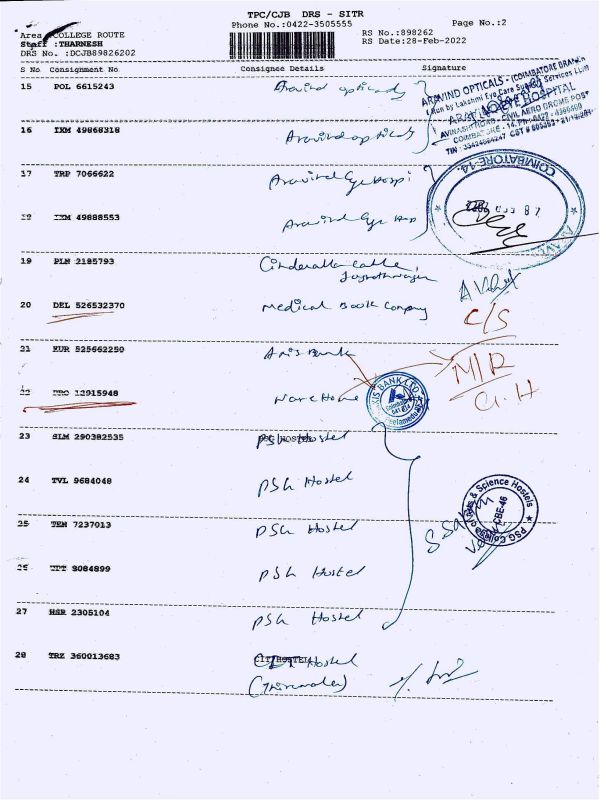 TPC/CJB DRS - SITR
Phone No.:0422-3505555
Page No.:2
Area :COLLEGE ROUTE
Staff :THARNESH
DRS No. :DCJB89826202
RS No.:898262
RS Date:28-Feb-2022
S No Consignment No Consignee Details Signature
15 POL 6615243 Aravind opticals
16 IXM 49868318 Aravind opticals
17 TRP 7066622 Aravind Eye Hospi
18 IXM 49888553 Aravind Eye Hos
19 PLN 2185793
20 DEL 526532370 Medical Book Company C/S
21 KUR 525662250 Axis Bank
M/R
22 12915948 G.H
23 SLM 290382535 PSG Hostel
24 TVL 9684048 PSG Hostel
25 TEN 7237013 PSG Hostel
26 3084899 PSG Hostel
27 HSR 2305104 PSG Hostel
28 TRZ 360013683 CIT Hostel
ARAVIND OPTICALS - (COIMBATORE BRANCH
(Run by Lakshmi Eye Care Support Services LLP)
ARAVIND EYE HOSPITAL
AVINASHI ROAD, CIVIL AERO DROME POST
COIMBATORE - 14.
COIMBATORE-14.
AXIS BANK LTD
PSG College of Arts & Science Hostels
CBE-46